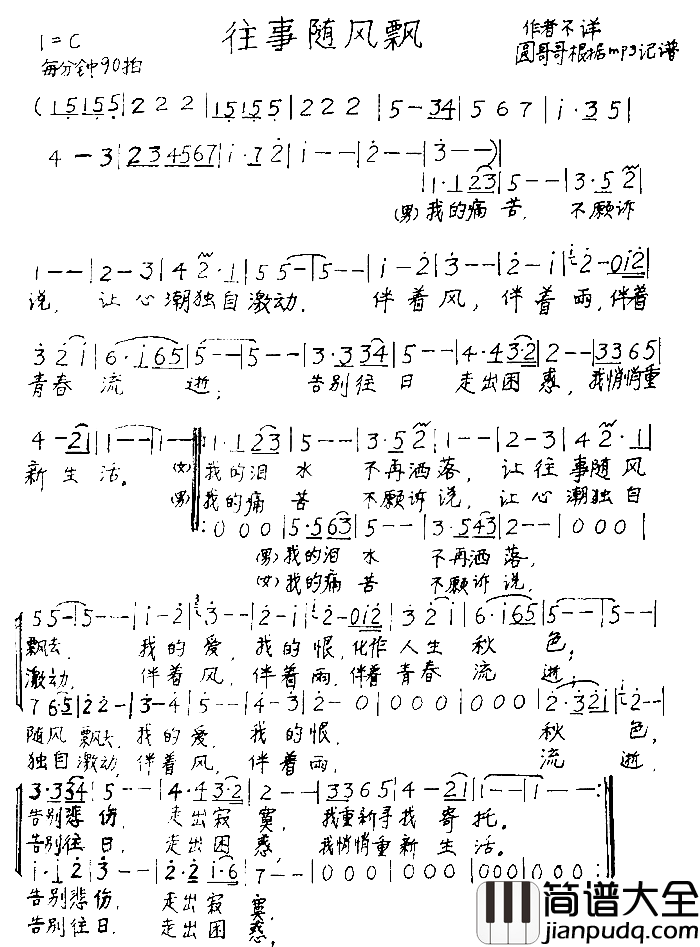 往事随风飘
1=C
每分钟90拍
作者不详
圆哥哥根据mp3记谱
(15155|222|15155|222|5-34|567|i·35|
4-3|234567|i·72|i--|2--|3--)|
|1·123|5--|3·52|
(男)我的痛苦, 不愿诉
1--|2-3|42·1|55--|5--|i-2|3--|2-i|2-0i2|
说, 让心潮独自激动. 伴着风, 伴着雨, 伴着
32i|6·i65|5--|5--|3·334|5--|4·432|2--|3365|
青春流逝; 告别往日 走出困惑, 我悄悄重
4-21|1--|1--||:1·123|5--|3·52|1--|2-3|42·1|
新生活。 (女)我的泪水 不再洒落, 让往事随风
(男)我的痛苦 不愿诉说, 让心潮独自
:000|5·563|5--|3·543|2--|000|
(男)我的泪水 不再洒落,
(女)我的痛苦 不愿诉说,
55--|5--|i-2|3--|2-i|2-0i2|32i|6·i65|5--|5--|
飘去. 我的爱, 我的恨, 化作人生秋色;
激动. 伴着风, 伴着雨, 伴着青春流逝;
765|22--|3-4|5--|4-3|2-0|000|000|2·32i|2--|
随风飘去, 我的爱, 我的恨, 秋色,
独自激动, 伴着风, 伴着雨, 流逝,
3·334|5--|4·432|2--|3365|4-21|1--|1--:||
告别悲伤, 走出寂寞, 我重新寻找寄托。
告别往日, 走出困惑 我悄悄重新生活。
i·i2|3--|2·2i·6|7--|000|000|000|000:||
告别悲伤, 走出寂寞
告别往日, 走出困惑,
简谱大全
jianpudq.com